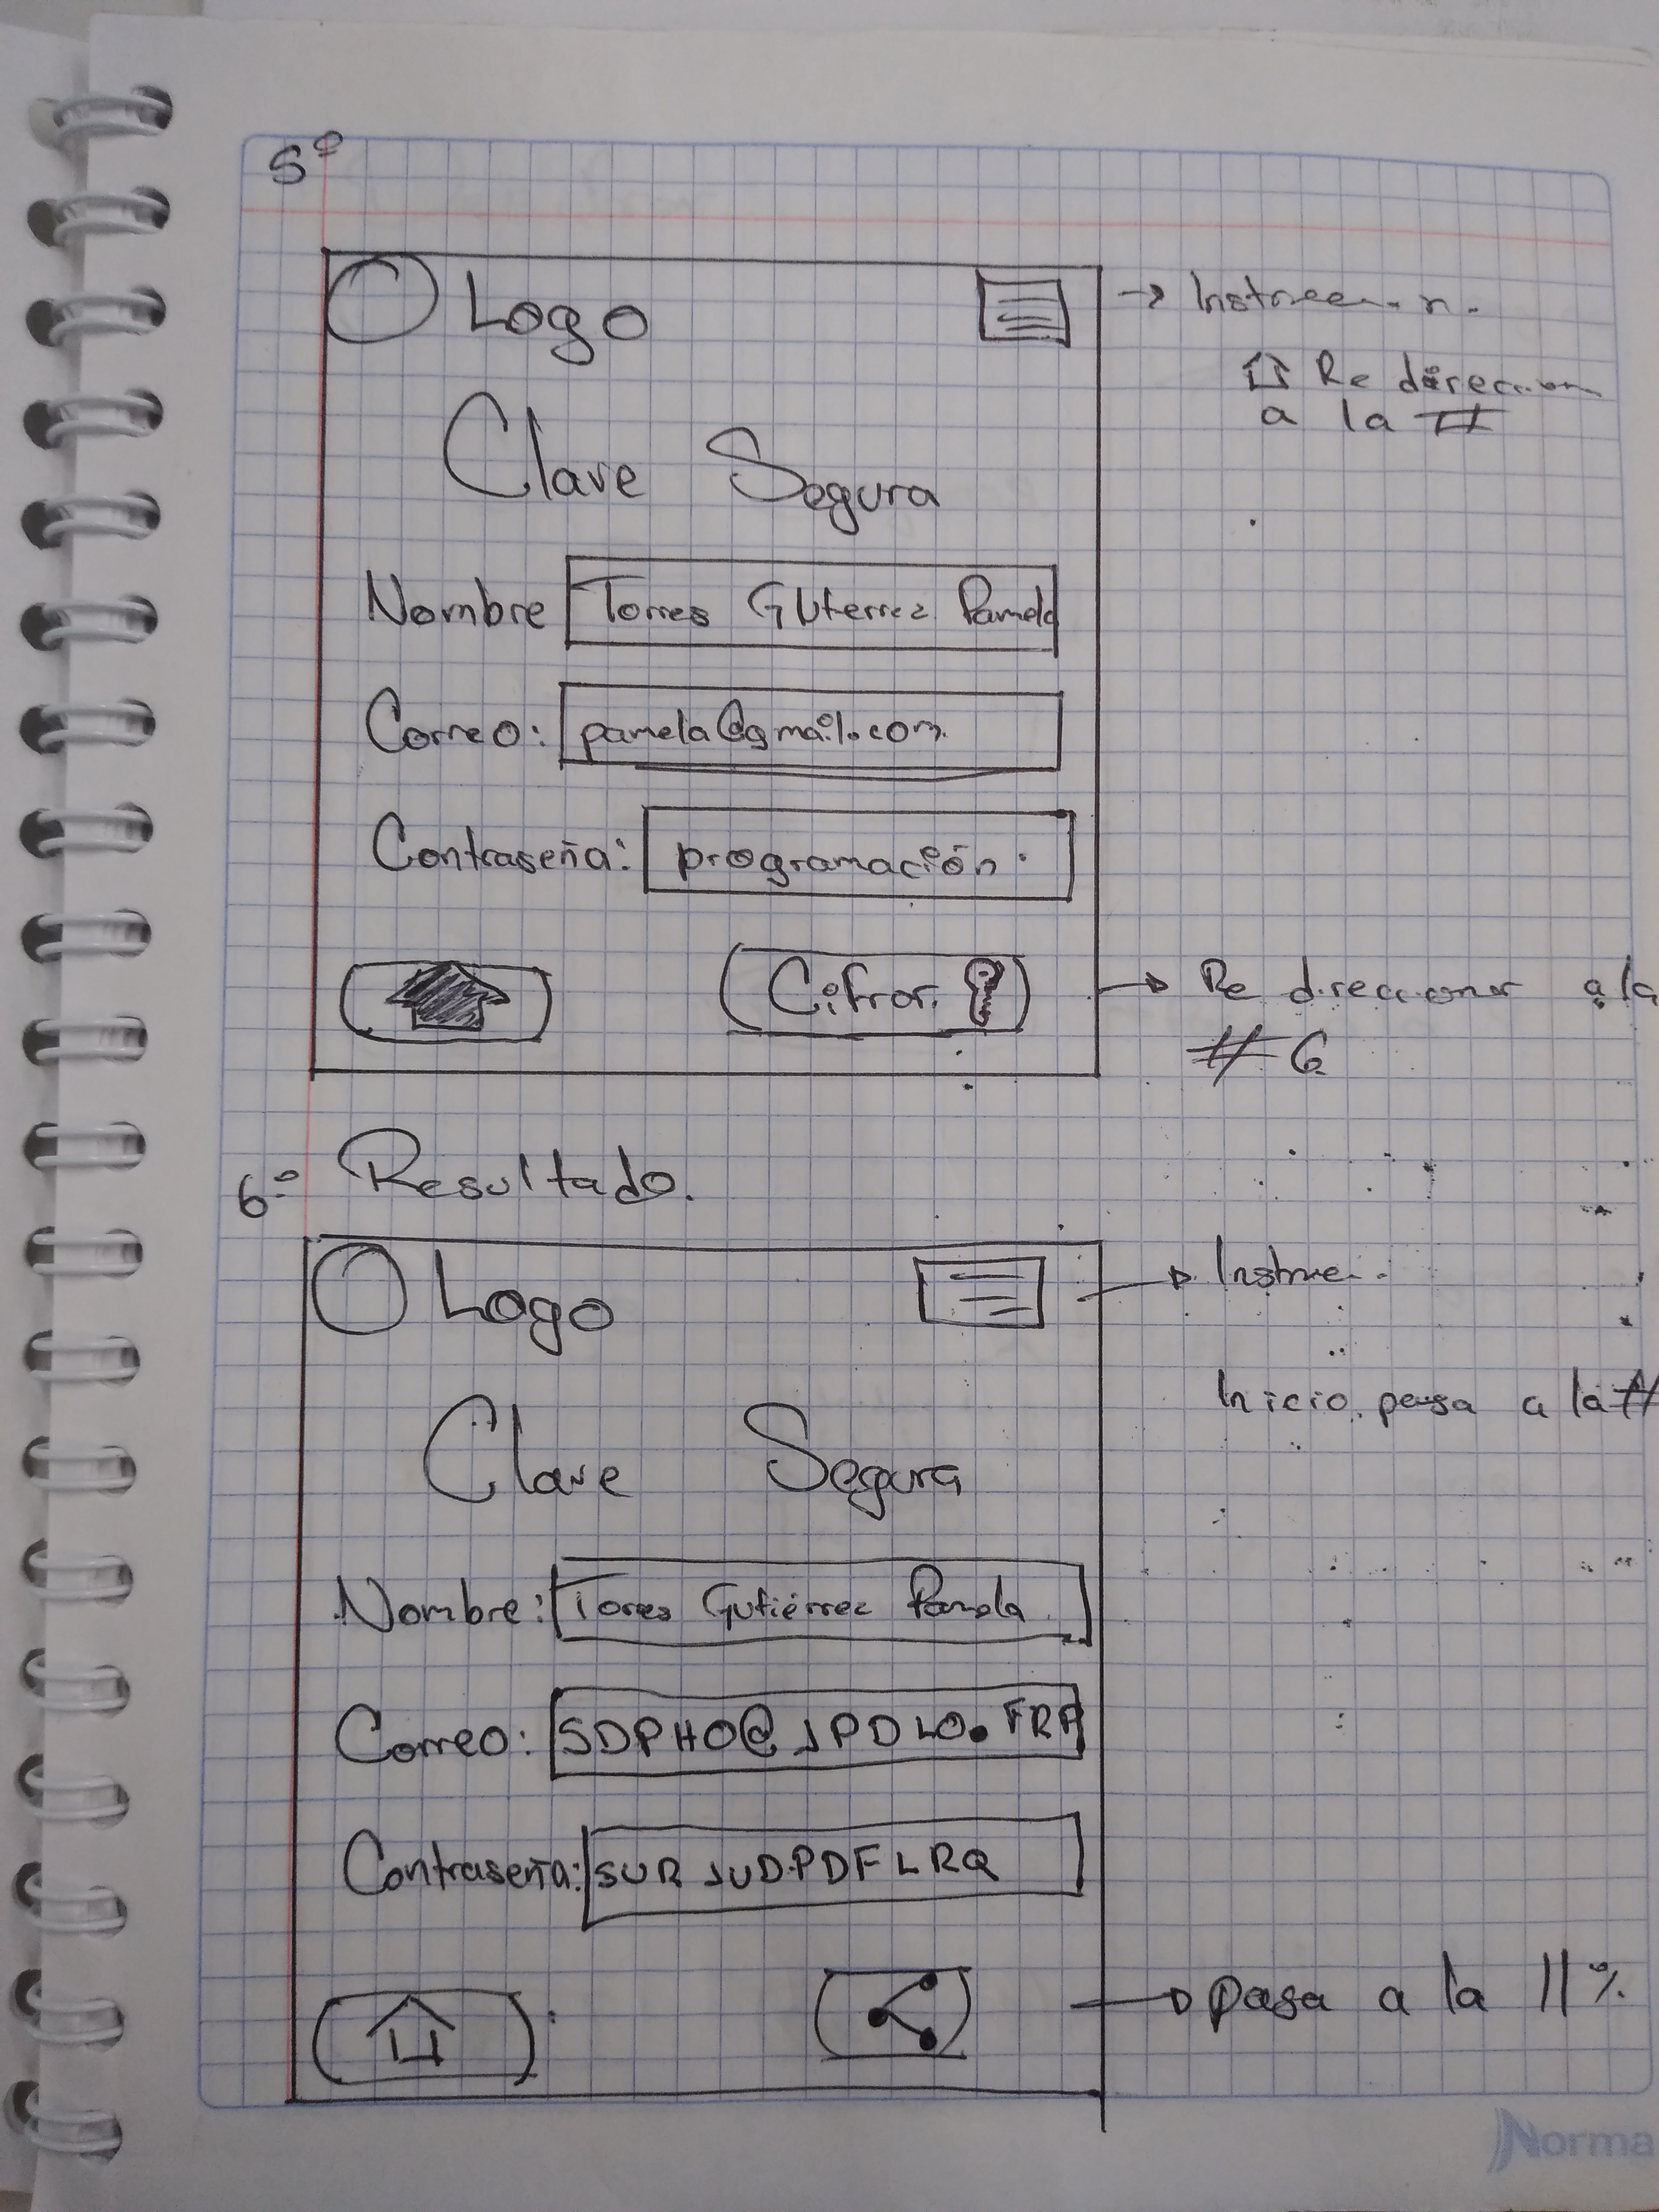 5º
Logo
→ Instrcc..n.
Re direccion
a la #
Clave Segura
Nombre Torres GUterrez Pamela
Correo: pamela@gmail.com.
Contraseña: programación.
Cifrar.
Re direccionar a la
# 6
6º Resultado.
Logo
Clave Segura
Inicio. pasa a la #
Nombre: Torres Gutiérrez Pamela.
Correo: SDPHO@JPDLO.FRP
Contraseña: SURJUDPDFLRQ
pasa a la 11
Norma